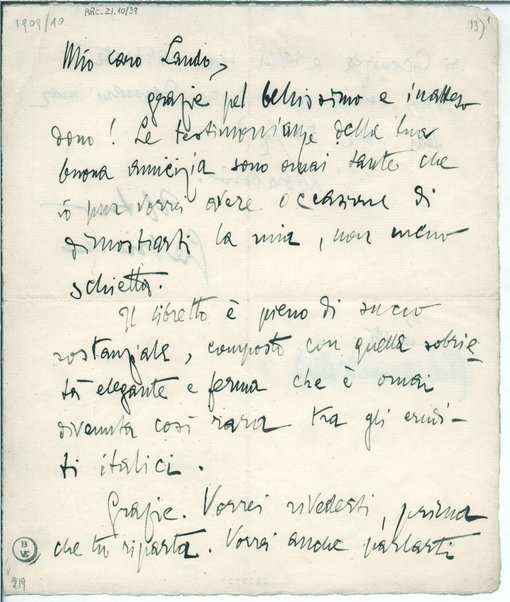 1909/10
ARC. 21.10/39
13)
Mio caro Lando,
grazie pel bellissimo e inatteso
dono! Le testimonianze della tua
buona amicizia sono omai tante che
io pur vorrei avere occasione di
dimostrarti la mia, non meno
schietta.
Il libretto è pieno di succo
sostanziale, composto con quella sobrie-
tà elegante e ferma che è omai
divenuta così rara tra gli erudi-
ti italici.
Grazie. Vorrei rivederti, prima
che tu riparta. Vorrei anche parlarti
B
VE
219